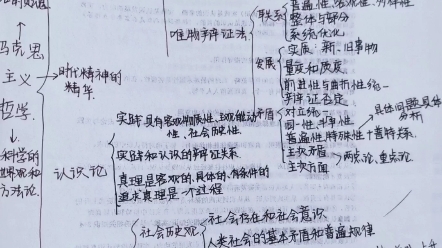 马克思
主义
哲学
科学的
世界观和
方法论
时代精神的
精华
唯物辩证法
联系
整体与部分
系统优化
发展
实质:新、旧事物
量变和质变
前进性与曲折性统一
辩证否定
矛盾
对立统一
同一性、斗争性
普遍性、特殊性
具体问题具体
分析
主次矛盾
主次方面
两点论、重点论
认识论
实践具有客观物质性、主观能动
性、社会历史性
实践和认识的辩证关系
真理是客观的、具体的、有条件的
追求真理是一个过程
社会历史观
社会存在和社会意识
人类社会的基本矛盾和普遍规律